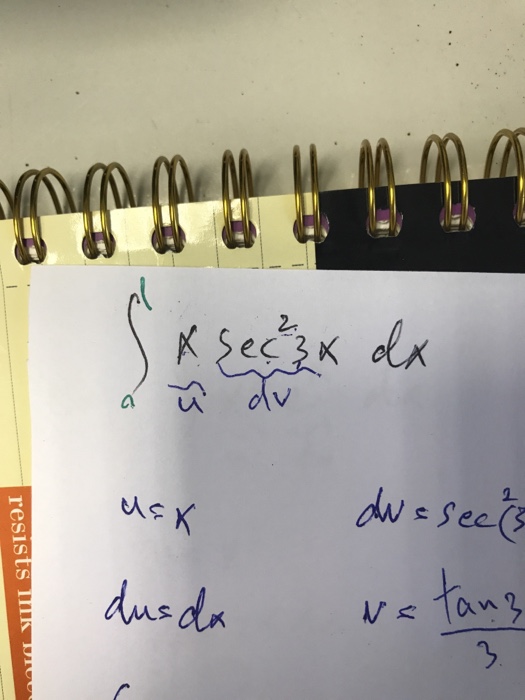 ∫₀¹ x sec²3x dx
u dv
u = x dv = sec²(3
du = dx v = tan3/3
resists ink